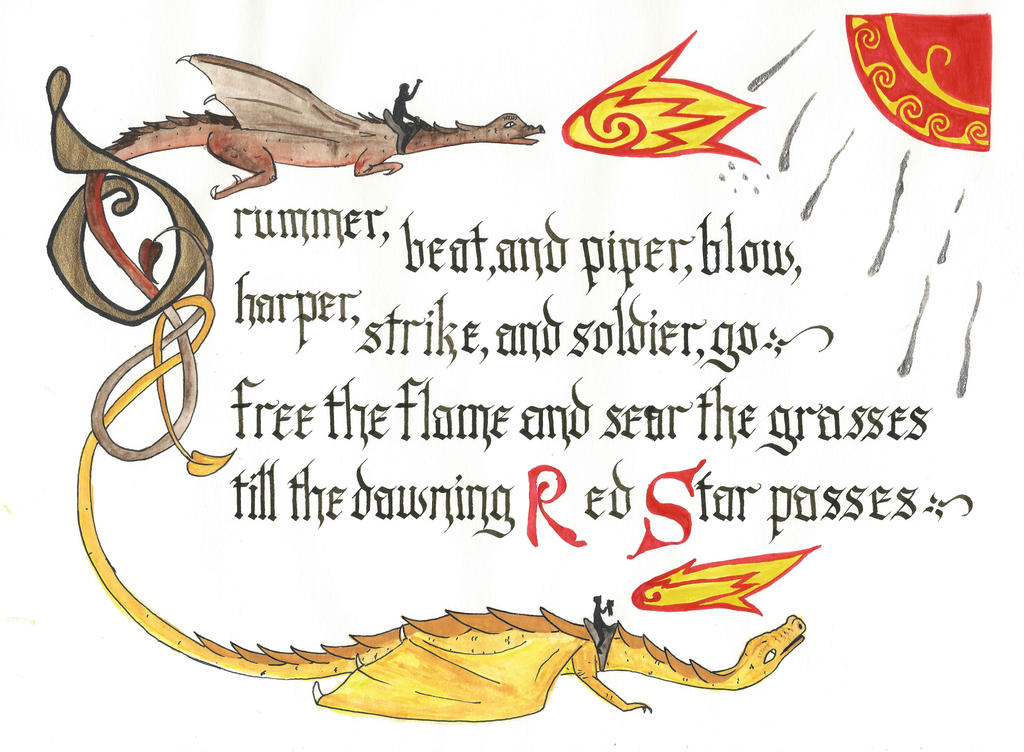 Drummer, beat, and piper, blow,
harper, strike, and soldier, go
free the flame and sear the grasses
till the dawning Red Star passes